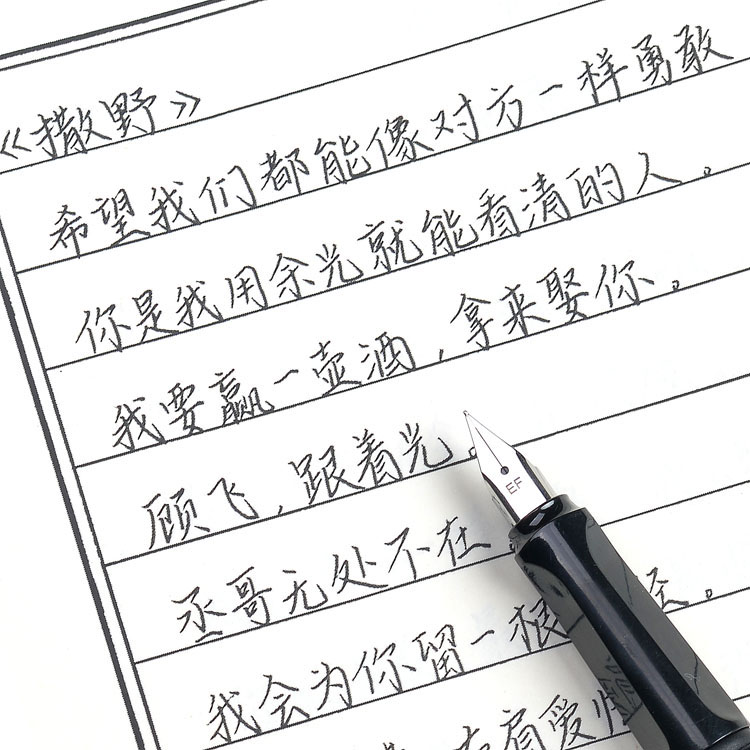 《撒野》
希望我们都能像对方一样勇敢
你是我用余光就能看清的人。
我要赢一壶酒，拿来娶你。
顾飞，跟着光
丞哥无处不在
我会为你留一根
有爱情
EF